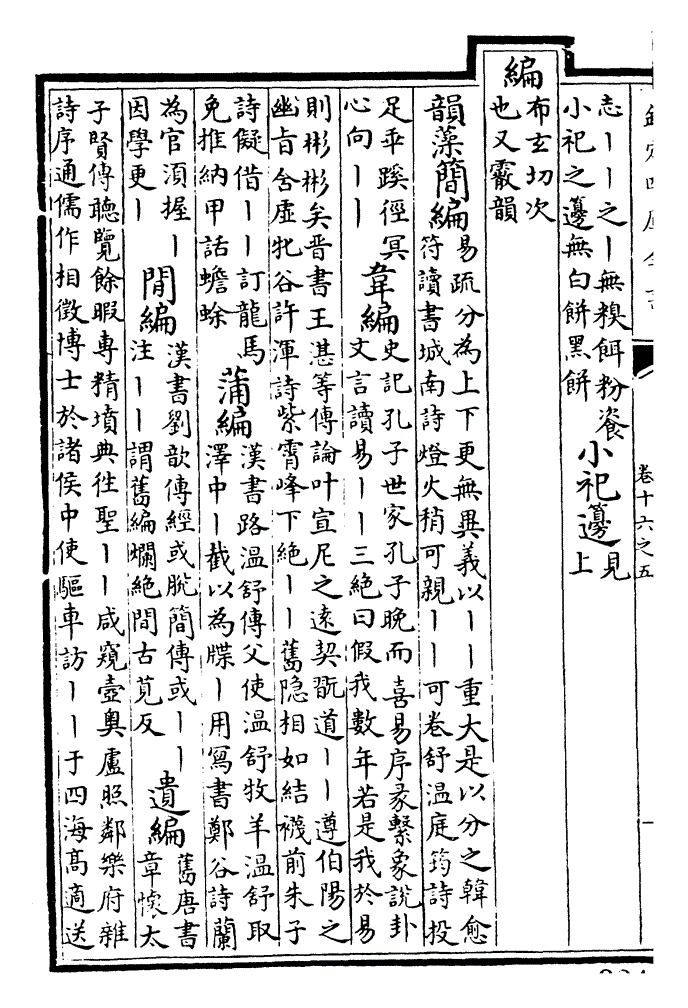 欽定四庫全書
卷十六之五
志丨丨之丨無糗餌粉餈
小祀之籩無白餅黑餅
小祀籩
見
上
編
布玄切次
也又霰韻
韻藻簡編
易疏分為上下更無異義以丨丨重大是以分之韓愈
符讀書城南詩燈火稍可親丨丨可卷舒温庭筠詩投
足乖蹊徑冥
心向丨丨
韋編
史記孔子世家孔子晚而喜易序彖繫象說卦
文言讀易丨丨三絶曰假我數年若是我於易
則彬彬矣晉書王湛等傳論叶宣尼之遠契翫道丨丨遵伯陽之
幽旨含虛牝谷許渾詩紫霄峰下絶丨丨舊隱相如結襪前朱子
詩儗借丨丨訂龍馬
免推納甲話蟾蜍
蒲編
漢書路温舒傳父使温舒牧羊温舒取
澤中丨截以為牒丨用寫書鄭谷詩蘭
為官須握丨
因學更丨
閒編
漢書劉歆傳經或脫簡傳或丨丨
注丨丨謂舊編爛絶間古莧反
遺編
舊唐書
章懷太
子賢傳聽覽餘暇專精墳典往聖丨丨咸窺壺奥盧照鄰樂府雜
詩序通儒作相徵博士於諸侯中使驅車訪丨丨于四海髙適送